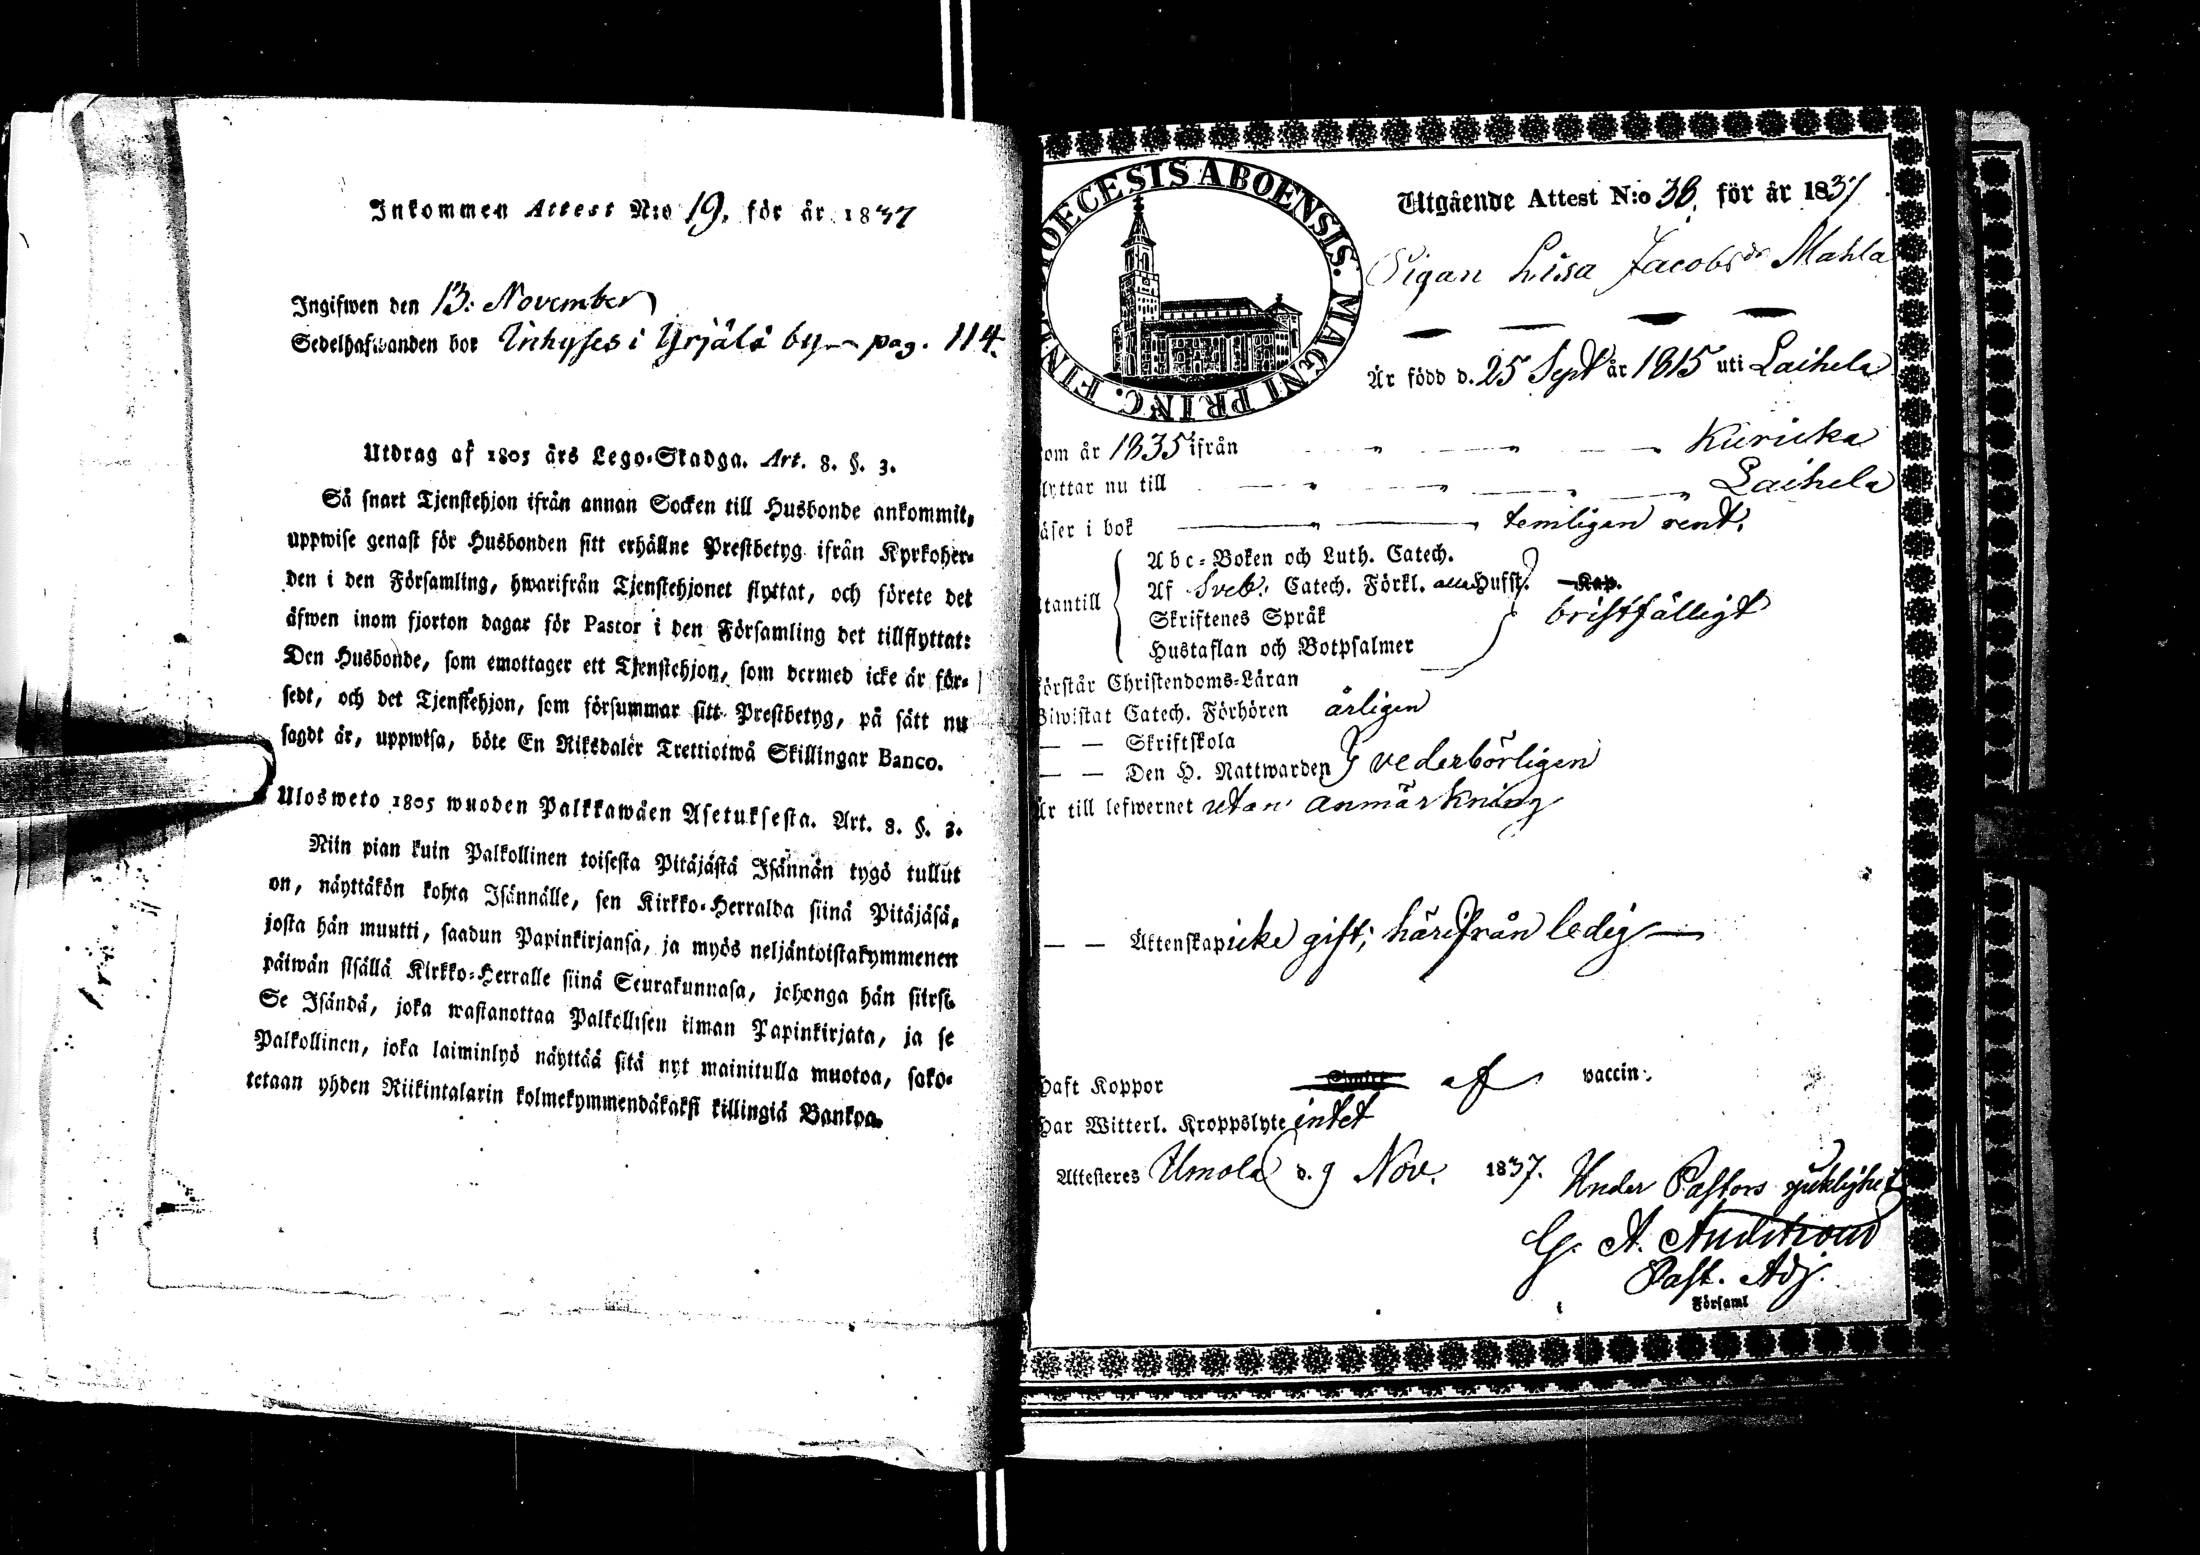 Inkommen Attest N:o 19, för år 1837
Ingifwen den 13: November
Sedelhafwanden bor Inhyses i Yrjälä by pag. 114.
Utdrag af 1805 års Lego-Stadga. Art. 8. §. 3.
Så snart Tjenstehjon ifrån annan Socken till Husbonde ankommit,
uppwise genast för Husbonden sitt erhållne Prestbetyg ifrån Kyrkoher-
den i den Församling, hwarifrån Tjenstehjonet flyttat, och förete det
äfwen inom fjorton dagar för Pastor i den Församling det tillflyttat:
Den Husbonde, som emottager ett Tjenstehjon, som dermed icke är för-
sedt, och det Tjenstehjon, som försummar sitt Prestbetyg, på sätt nu
sagdt är, uppwisa, böte En Riksdaler Trettiotwå Skillingar Banco.
Ulosweto 1805 wuoden Palkkawäen Asetuksesta. Art. 8. §. 3.
Niin pian kuin Palkollinen toisesta Pitäjästä Isännän tygö tullut
on, näyttäkön kohta Isännälle, sen Kirkko-Herralda siinä Pitäjäsä,
josta hän muutti, saadun Papinkirjansa, ja myös neljäntoistakymmenen
päiwän sisällä Kirkko-Herralle siinä Seurakunnasa, johonga hän siirsi.
Se Isändä, joka wastanottaa Palkollisen ilman Papinkirjata, ja se
Palkollinen, joka laiminlyö näyttää sitä nyt mainitulla muotoa, sako-
tetaan yhden Riikintalarin kolmekymmendäkaksi killingiä Bankoa.
DIOECESIS ABOENSIS. MAGNI PRINC. FINL.
Utgående Attest N:o 38. för år 1837
Pigan Lisa Jacobsdr Mahla
Är född d. 25 Sept år 1815 uti Laihela
om år 1835 ifrån Kuricka
lyttar nu till Laihela
äser i bok temligen rent.
Abc-Boken och Luth. Catech.
Af Sveb. Catech. Förkl. alla Hufst. Kap.
tantill Skriftenes Språk bristfälligt
Hustaflan och Botpsalmer
örstår Christendoms-Läran
Biwistat Catech. Förhören årligen
— — Skriftskola
— — Den H. Nattwarden vederbörligen
Är till lefwernet utan anmärkning
— — Äktenskap icke gift; härifrån ledig —
Haft Koppor af vaccin:
Har Witterl. Kroppslyte intet
Attesteres Ilmola d. 9 Nov. 1837. Under Pastors sjuklighet
G. A.
Past. Adj.
Församl